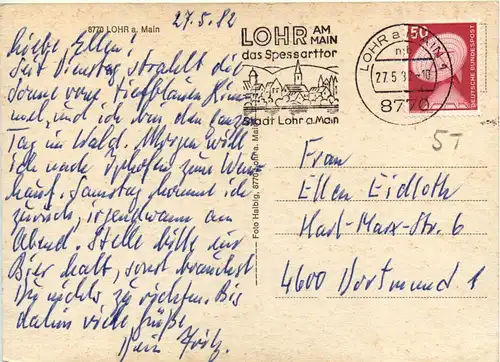 8770 LOHR a. Main
27.5.82
Liebe Ellen!
Seit Dienstag strahlt die
Sonne vom tiefblauen Him
mel, und ich war den ganzen
Tag im Wald. Morgen will
ich nach Iphofen zum Wein
kauf. Samstag komme ich
zurück, irgendwann am
Abend. Stelle bitte nur
Bier kalt, sonst brauchst
Du nichts zu richten. Bis
dahin viele Grüße
Dein Fritz.
Foto Halbig, 8770 Lohr a. Main
LOHR AM MAIN
das Spessarttor
Stadt Lohr a. Main
LOHR a. MAIN 1
27.5.8
8770
50
DEUTSCHE BUNDESPOST
51
Frau
Ellen Eidloth
Karl-Marx-Str. 6
4600 Dortmund 1